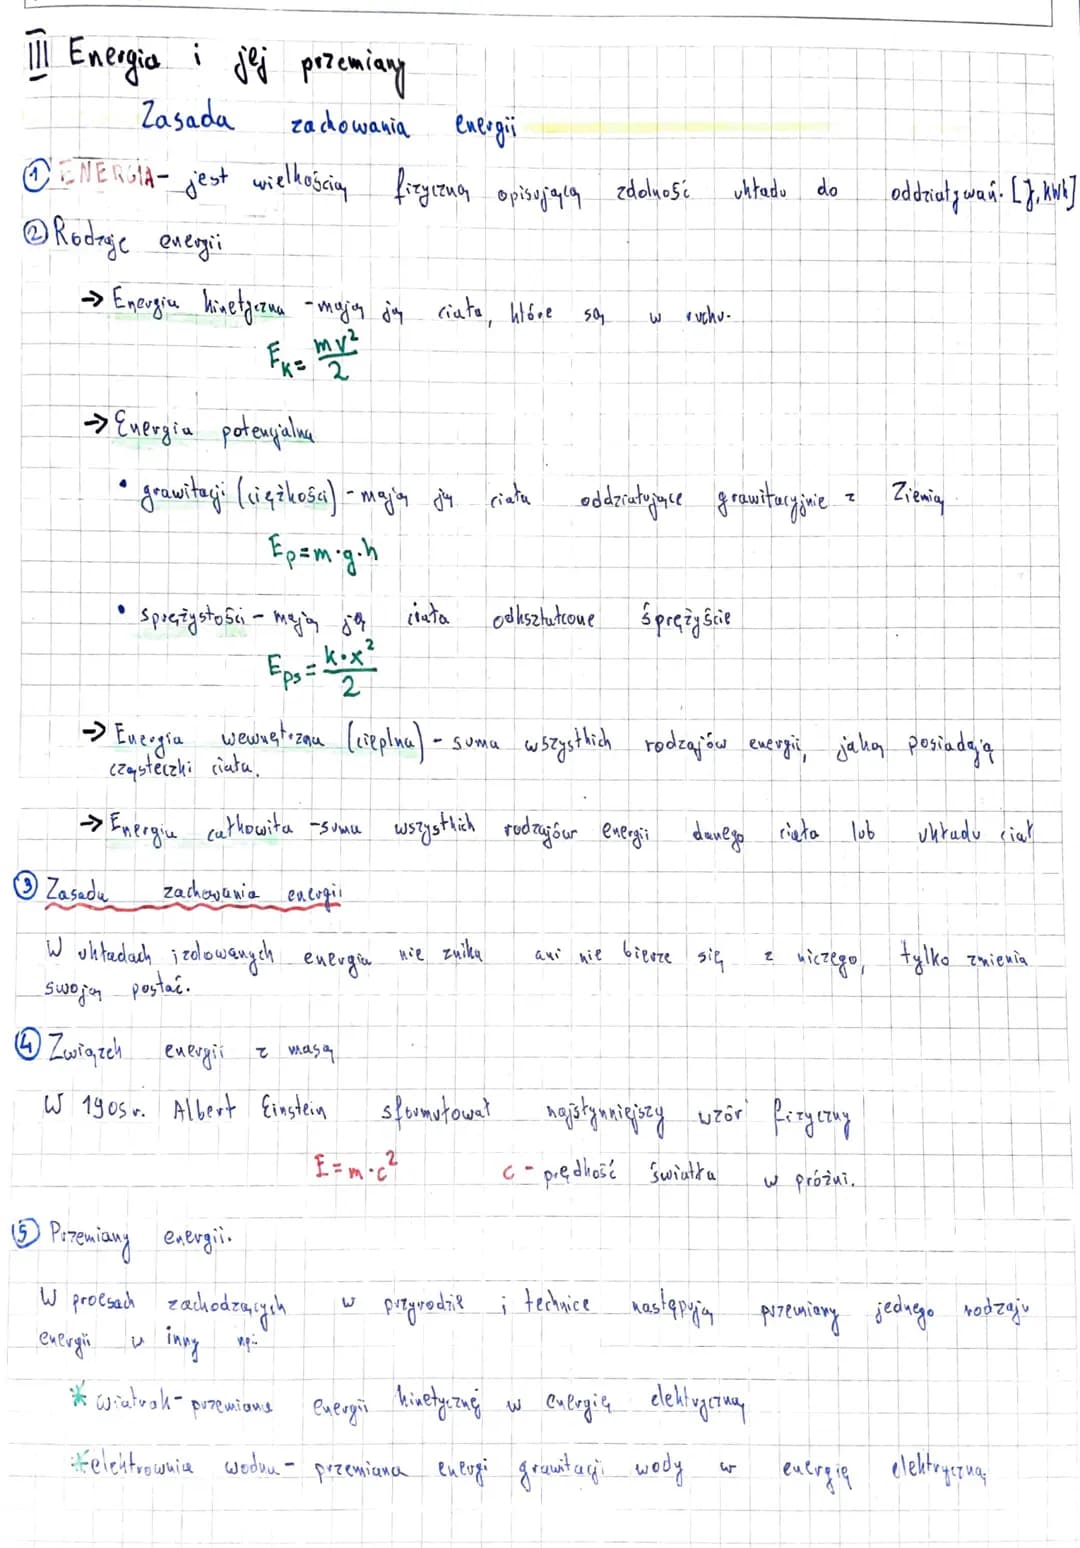 III Energia i jej przemiany
Zasada zachowania energii
① ENERGIA - jest wielkością fizyczną opisującą zdolność układu do oddziaływań. [J, kWh]
② Rodzaje energii
→ Energia kinetyczna - mają ją ciała, które są w ruchu.
Ek = mv²/2
→ Energia potencjalna
• grawitacji (ciężkości) - mają ją ciała oddziałujące grawitacyjnie z Ziemią
Ep = m·g·h
• sprężystości - mają ją ciała odkształcone sprężyście
Eps = k·x²/2
→ Energia wewnętrzna (cieplna) - suma wszystkich rodzajów energii, jaką posiadają
cząsteczki ciała.
→ Energia całkowita - suma wszystkich rodzajów energii danego ciała lub układu ciał
③ Zasada zachowania energii
W układach izolowanych energia nie znika ani nie bierze się z niczego, tylko zmienia
swoją postać.
④ Związek energii z masą
W 1905 r. Albert Einstein sformułował najsłynniejszy wzór fizyczny
E = m·c² c - prędkość światła w próżni.
⑤ Przemiany energii.
W procesach zachodzących w przyrodzie i technice następują przemiany jednego rodzaju
energii w inny np:
* wiatrak - przemiana energii kinetycznej w energię elektryczną
* elektrownia wodna - przemiana energi grawitacji wody w energię elektryczną.